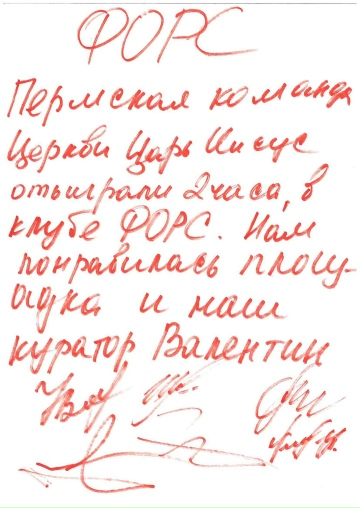 ФОРС
Пермская команда
Церкви Царь Иисус
отыграли 2 часа, в
клубе ФОРС. Нам
понравилась площ-
адка и наш
куратор Валентин